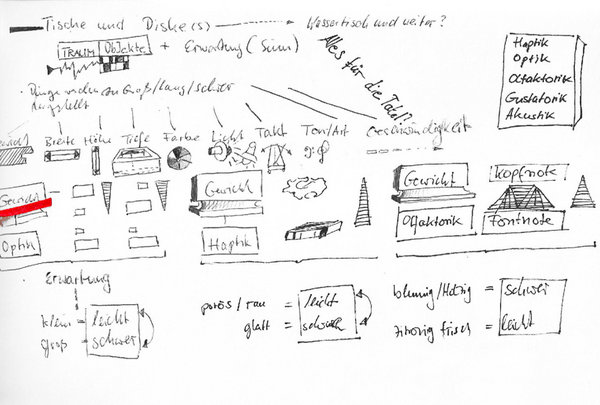 Tische und Diske(s) Wassertisch und weiter?
TRAUM Objekte + Erwartung (Sinn)
Alles für die Tafel?
Haptik
Optik
Olfaktorik
Gustatorik
Akustik
Dinge werden zu Groß/lang/schwer
dargestellt
Gewicht Breite Höhe Tiefe Farbe Licht Takt Ton/Art Geschwindigkeit
Gewicht
Optik
Gewicht
Haptik
Gewicht Kopfnote
Olfaktorik Fontnote
Erwartung
klein = leicht
groß = schwer
porös / rau = leicht
glatt = schwer
blumig/Holzig = schwer
zitronig frisch = leicht